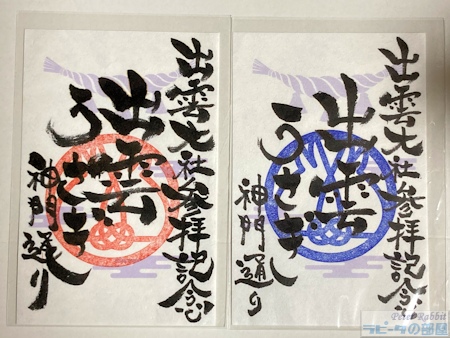 出雲大社参拝記念
出雲
うさぎ
神門通り
出雲大社参拝記念
出雲
うさぎ
神門通り
Peter Rabbit
ラビータの部屋